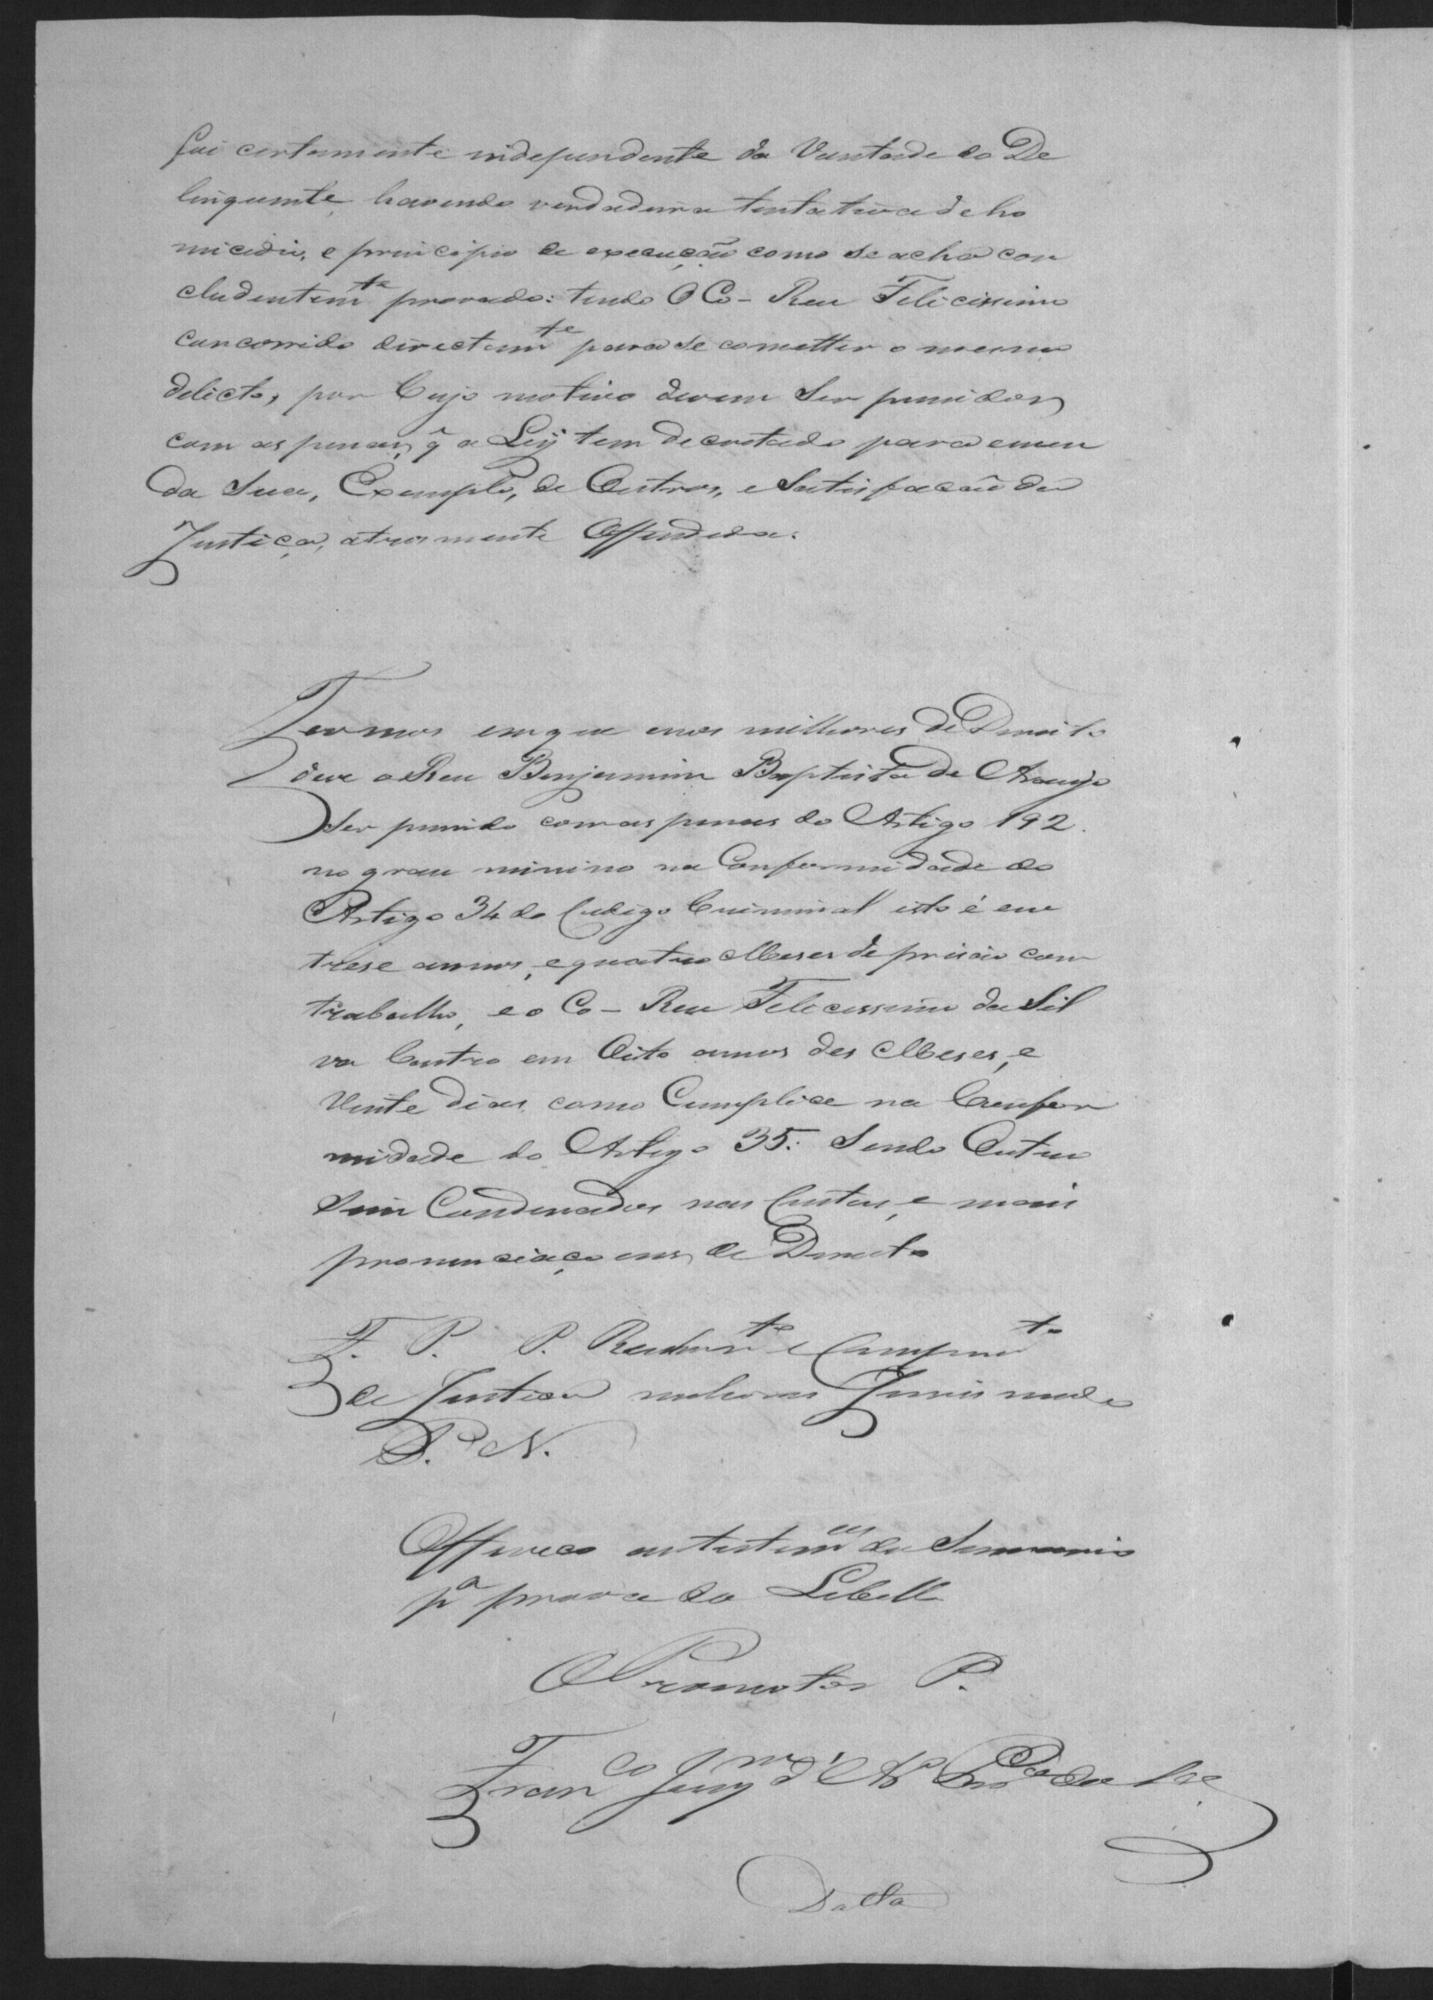 foi certamente independente da Vontade do De
linquente, havendo verdadeira tentativa de ho
micidio, e principio de execução como se acha con
cludentemte provado: tendo O Co-Reu Felicissimo
concorrido directamte para se cometter o mesmo
delicto, por Cujo motivo devem Ser punidos
com as penas, q̃ a Ley tem decretado para emen
da Sua, Exemplo, de Outros, e Satisfacaõ da
Justiça, atrosmente Offendida.
Termos em que e nos milhores de Direito
deve o Reu Benjamim Baptista de Araujo
Ser punido com as penas do Artigo 192.
no grau minimo na Conformidade do
Artigo 34 do Codigo Criminal isto é em
trese annos, e quatro Meses de prisaõ com
trabalho, e o Co-Reu Felicissimo da Sil
va Castro em Oito annos des Meses, e
Vinte dias como Complice na Confor
midade do Artigo 35. Sendo Outro
Sim Condenados nas Custas, e mais
pronunciaçoens de Direito
F. P. P. Recebimto e Comprimto
de Justiça melhores Juris modo
P. N.
Offereco as testemas do Summario
pa prova do Libello
O Promotor P.
Franco Joaqm d'
Datta